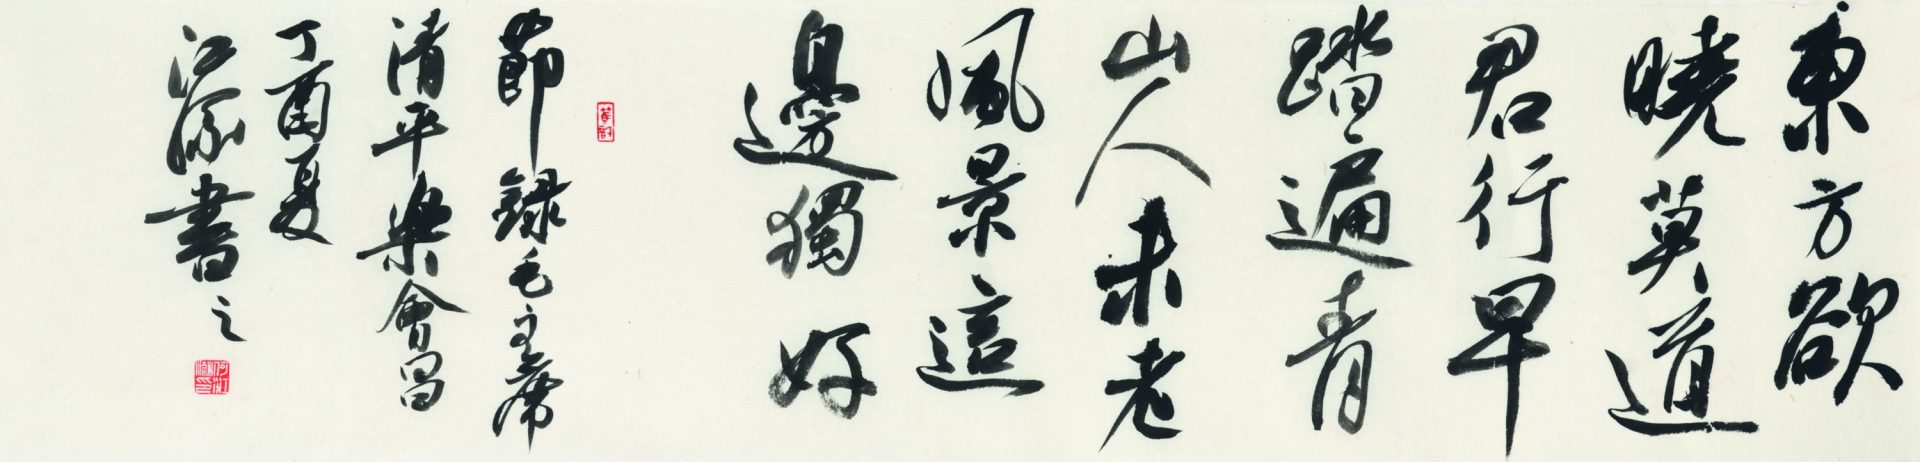 東方欲
曉莫道
君行早
踏遍青
山人未老
風景這
邊獨好
節錄毛主席
清平樂會昌
丁酉夏
江 書之